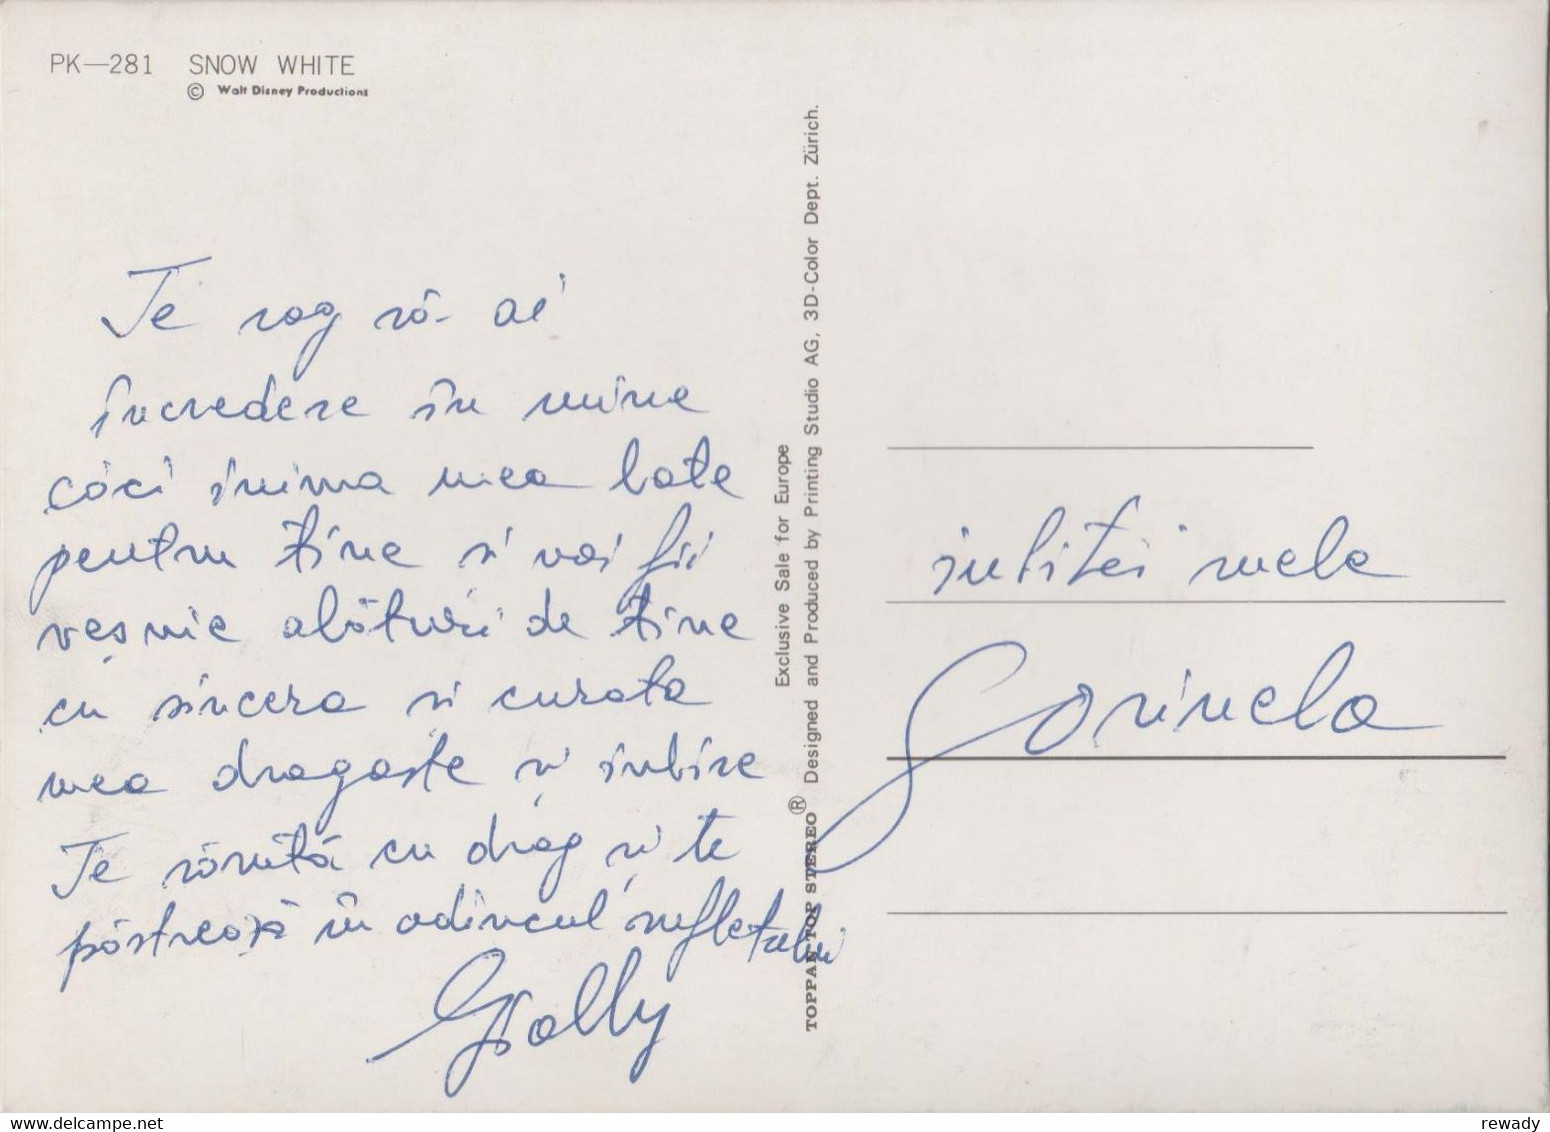 PK—281 SNOW WHITE
© Walt Disney Productions
Te rog să ai
încredere în mine
căci inima mea bate
pentru tine si voi fii
veșnic alături de tine
cu sincera si curata
mea dragoste și iubire
Te sărută cu drag și te
păstrează în adîncul sufletului
Exclusive Sale for Europe
TOPPAN TOP STEREO® Designed and Produced by Printing Studio AG, 3D-Color Dept. Zürich.
iubitei mele
Sorinela
delcampe.net
rewady